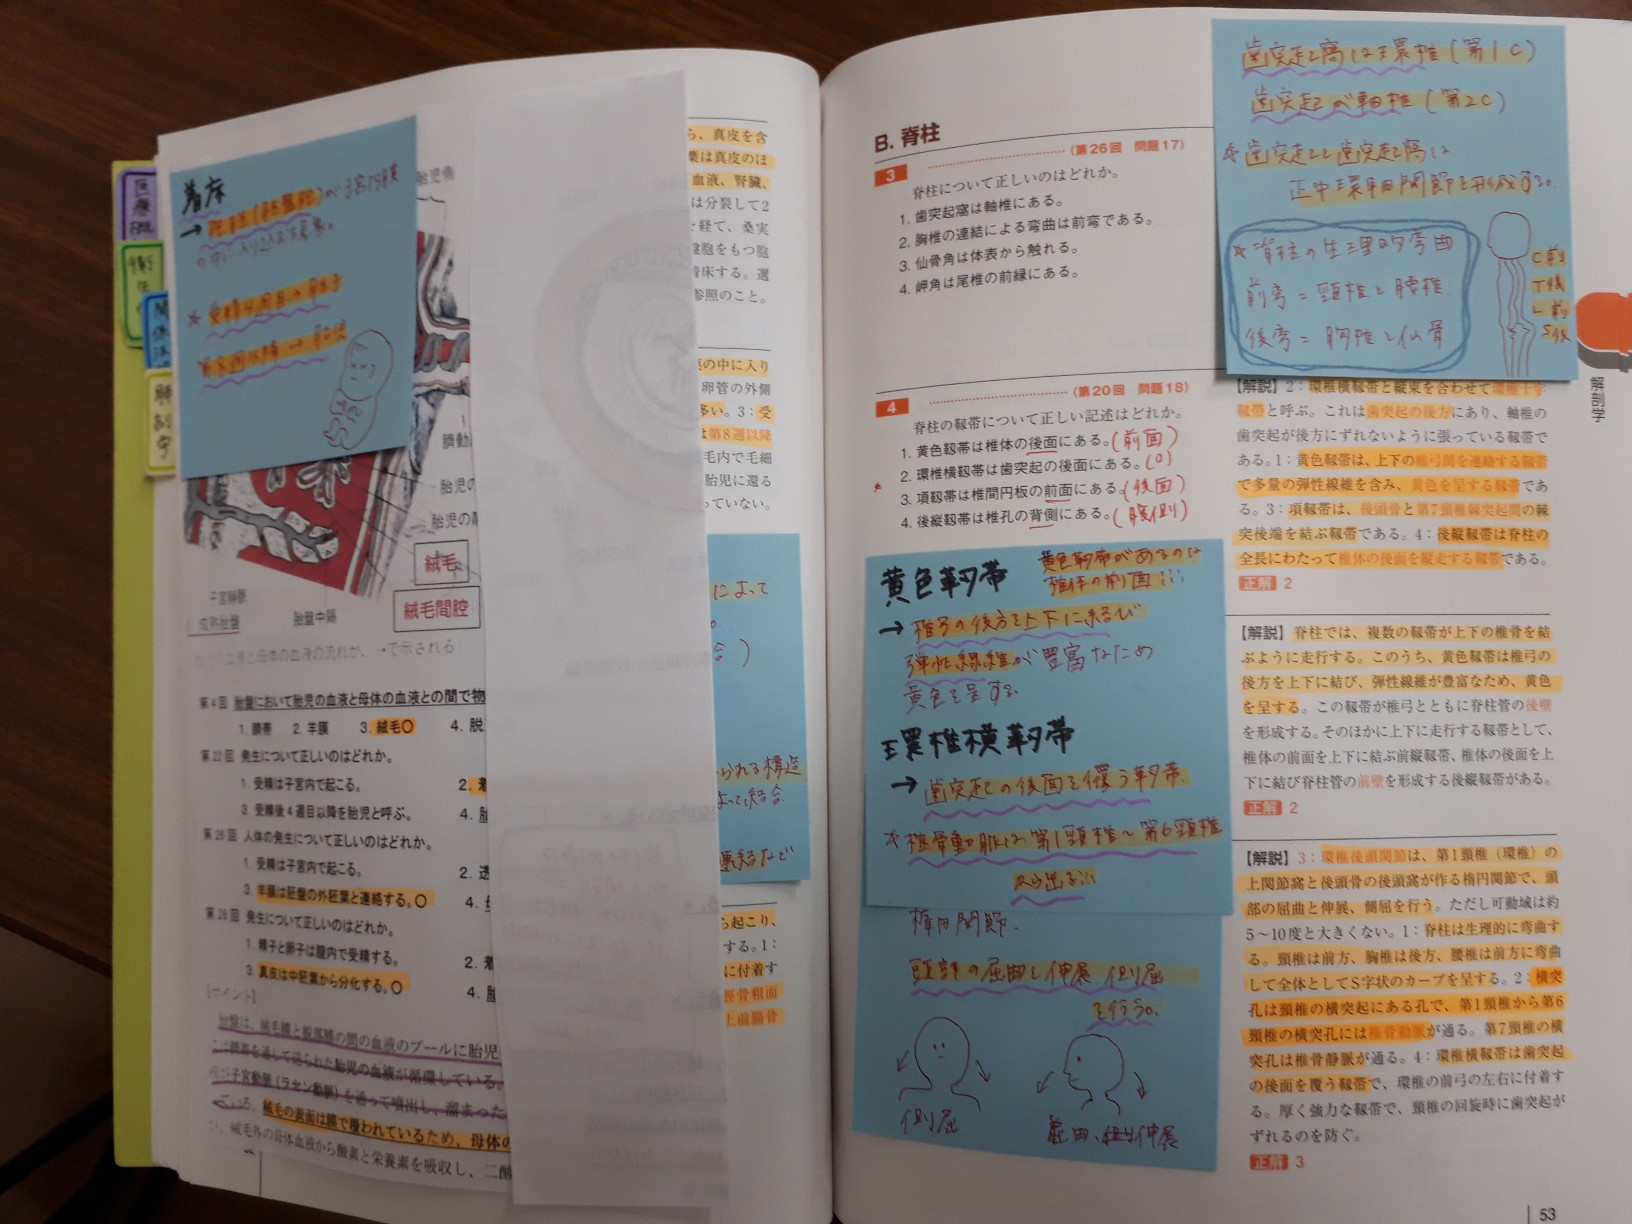 医療
関係法
解剖学
着床
の中に入り込む現象。
胎児
胎児側
臍動
胎児の
絨毛
絨毛間腔
胎盤中隔
成熟胎盤
第4回 胎盤において胎児の血液と母体の血液との間で物
1. 臍帯 2. 羊膜 3. 絨毛○ 4. 脱
第22回 発生について正しいのはどれか。
1. 受精は子宮内で起こる。 2. 着
3. 受精後4週目以降を胎児と呼ぶ。 4. 胎
人体の発生について正しいのはどれか。
1. 受精は子宮内で起こる。 2. 透
3. 羊膜は胚盤の外胚葉と連絡する。○ 4.
第28回 発生について正しいのはどれか。
1. 精子と卵子は腟内で受精する。 2. 着
3. 真皮は中胚葉から分化する。○ 4. 胎
[ポイント]
胎盤は、絨毛膜と脱落膜の間の血液のプールに胎児
を通して送られた胎児の血液が循環している。
子宮動脈(ラセン動脈)を通って噴出し、溜まった
ている。絨毛の表面は膜で覆われているため、母体の
絨毛外の母体血液から酸素と栄養素を吸収し、二酸
ら、真皮を含
葉は真皮のほ
血液、腎臓、
は分裂して2
経て、桑実
盤胞をもつ胞
着床する。選
参照のこと。
の中に入り
卵管の外側
多い。3：受
は第8週以降
毛内で毛細
胎児に還る
っていない。
によって
合)
られる構造
よって結合
連結など
ら起こり、
する。1：
に付着す
脛骨粗面
上前腸骨
B. 脊柱
3 (第26回 問題17)
脊柱について正しいのはどれか。
1. 歯突起窩は軸椎にある。
2. 胸椎の連結による弯曲は前弯である。
3. 仙骨角は体表から触れる。
4. 岬角は尾椎の前縁にある。
4 (第20回 問題18)
脊柱の靱帯について正しい記述はどれか。
1. 黄色靱帯は椎体の後面にある。(前面)
2. 環椎横靱帯は歯突起の後面にある。(○)
3. 項靱帯は椎間円板の前面にある。(後面)
4. 後縦靱帯は椎孔の背側にある。(腹側)
黄色靭帯 黄色靭帯があるのは
椎体の前面
→ 椎弓の後方を上下に結び
弾性線維が豊富なため
黄色を呈する。
環椎横靭帯
→ 歯突起の後面を覆う靭帯。
☆椎骨動脈は第1頸椎〜第6頸椎
椎間関節。
頭部の屈曲と伸展 側屈
を行う。
側屈
屈曲、伸展
歯突起窩は環椎(第1C)
歯突起が軸椎(第2C)
☆歯突起と歯突起窩は
正中環軸関節を形成する。
☆脊柱の生理的弯曲
前弯=頸椎と腰椎
後弯=胸椎と仙骨
C前
T後
L前
S後
解剖学
【解説】2：環椎横靱帯と縦束を合わせて環椎十字
靱帯と呼ぶ。これは歯突起の後方にあり、軸椎の
歯突起が後方にずれないように張っている靱帯で
ある。1：黄色靱帯は、上下の椎弓間を連絡する靱帯
で多量の弾性線維を含み、黄色を呈する靱帯であ
る。3：項靱帯は、後頭骨と第7頸椎棘突起間の棘
突後端を結ぶ靱帯である。4：後縦靱帯は脊柱の
全長にわたって椎体の後面を縦走する靱帯である。
正解 2
【解説】脊柱では、複数の靱帯が上下の椎骨を結
ぶように走行する。このうち、黄色靱帯は椎弓の
後方を上下に結び、弾性線維が豊富なため、黄色
を呈する。この靱帯が椎弓とともに脊柱管の後壁
を形成する。そのほかに上下に走行する靱帯として、
椎体の前面を上下に結ぶ前縦靱帯、椎体の後面を上
下に結び脊柱管の前壁を形成する後縦靱帯がある。
正解 2
【解説】3：環椎後頭関節は、第1頸椎（環椎）の
上関節窩と後頭骨の後頭窩が作る楕円関節で、頭
部の屈曲と伸展、側屈を行う。ただし可動域は約
5〜10度と大きくない。1：脊柱は生理的に弯曲す
る。頸椎は前方、胸椎は後方、腰椎は前方に弯曲
して全体としてS字状のカーブを呈する。2：横突
孔は頸椎の横突起にある孔で、第1頸椎から第6
頸椎の横突孔には椎骨動脈が通る。第7頸椎の横
突孔は椎骨静脈が通る。4：環椎横靱帯は歯突起
の後面を覆う靱帯で、環椎の前弓の左右に付着す
る。厚く強力な靱帯で、頸椎の回旋時に歯突起が
ずれるのを防ぐ。
正解 3
53